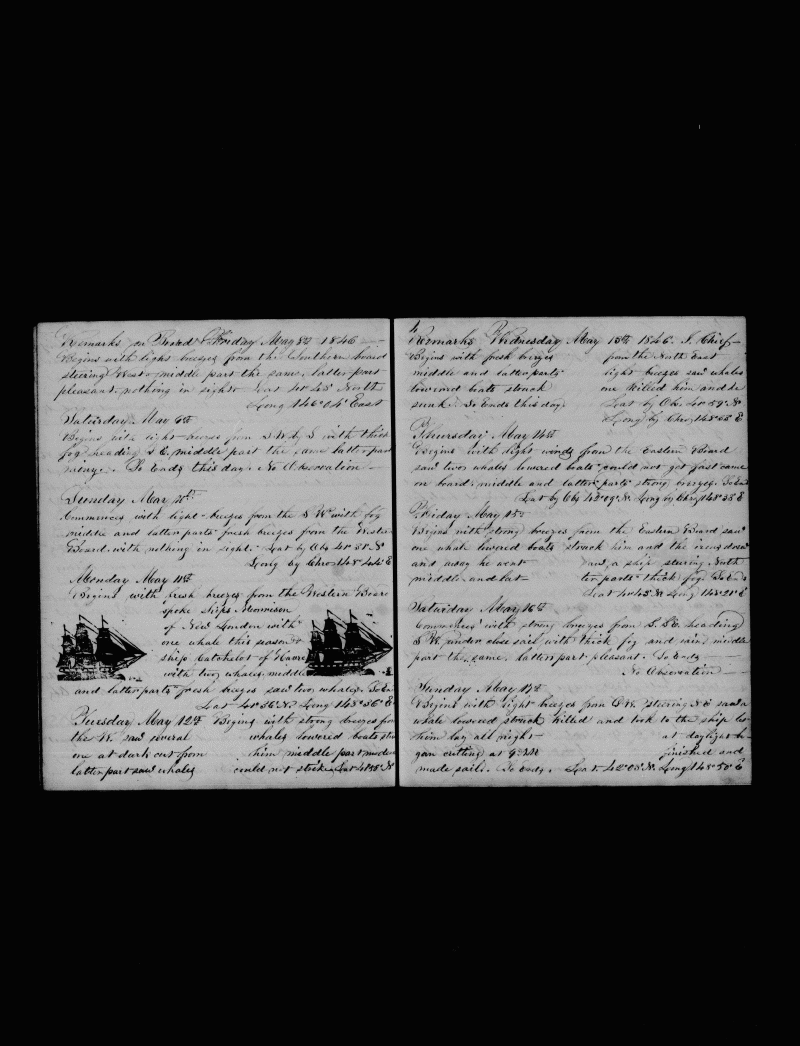 Remarks on Board Friday May 8th 1846
Begins with light breezes from the Southern board
steering West middle part the same latter part
pleasant nothing in sight Lat 41° 45' North
Long 146° 04' East
Saturday May 9th
Begins with light breeze from SW by S with thick
fog heading S E. middle part the same latter part
. So Ends this day. No Observation
Sunday May 10th
Commences with light breezes from the S W with fog
middle and latter parts fresh breezes from the Western
Board. with nothing in sight. Lat by Obs N
Long by Chro E
Monday May 11th
Begins with fresh breezes from the Western Board
spoke ships Morrison
of New London with
one whale this season &
ship Catchelot of Havre
with two whales. middle
and latter parts fresh breezes saw two whales. So Ends
Lat N. Long 143° 56' E
Tuesday May 12th Begins with strong breezes from
the W. saw several whales lowered boats
one at dark cut from him middle part
latter part saw whales could not strike Lat N
Remarks Wednesday May 13th 1846. J. Chief
Begins with fresh breezes from the North East
middle and latter parts light breezes saw whales
lowered boats struck one killed him and he
sunk. So Ends this day Lat by Obs N
Long by Chro E
Thursday May 14th
Begins with light winds from the Eastern Board
saw two whales lowered boats could not get fast came
on board. middle and latter parts strong breezes. So Ends
Lat by Obs 42° 09' N Long by Chro E
Friday May 15th
Begins with strong breezes from the Eastern Board saw
one whale lowered boats struck him and the irons drew
and away he went saw a ship steering North
middle and lat ter parts thick fog So Ends
Lat N Long 143° 21' E
Saturday May 16th
Commences with strong breezes from S. S E. heading
S W. under close sail with thick fog and rain middle
part the same. latter part pleasant. So Ends
No Observation
Sunday May 17th
Begins with light breezes from S. W. steering N E saw a
whale lowered struck killed and took to the ship
him lay all night at daylight be-
gan cutting at 9 finished and
made sail. So Ends. Lat. 42° 03' N. Long 143° 50' E